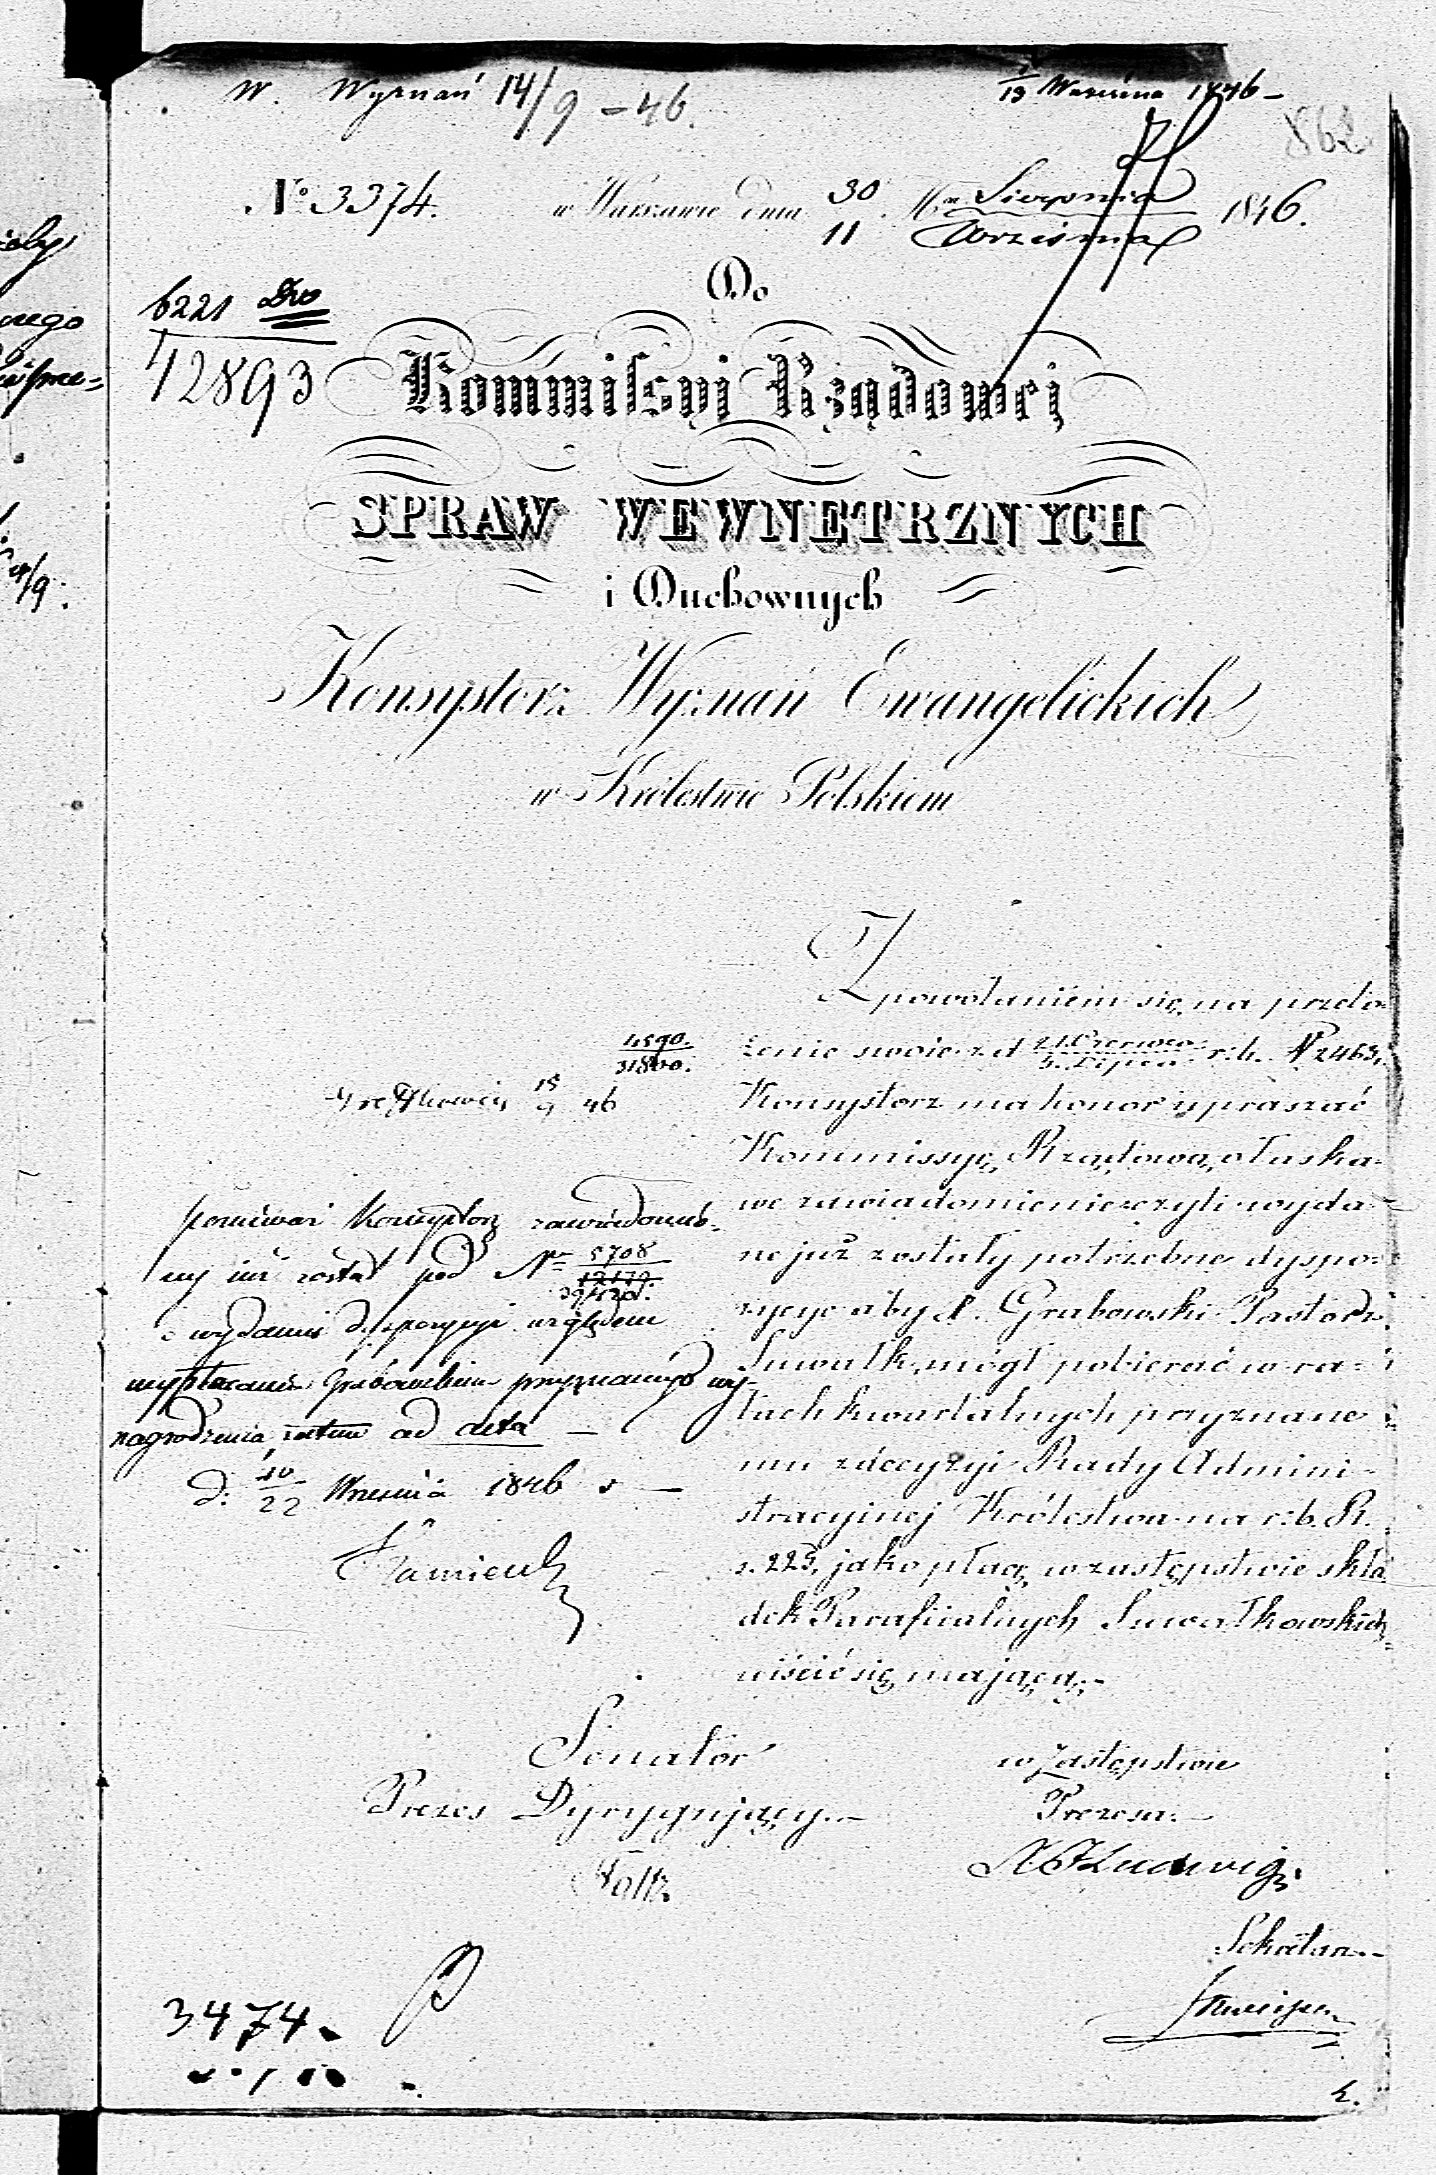 W. Wyznań 14/9 – 46.
1/13 Września 1846 –
862
№ 3374.
w Warszawie dnia 30/11 Sierpnia/Września 1846.
6221 Dro
12893
Do
Kommissyi Rządowej
SPRAW WEWNĘTRZNYCH
i Duchownych
Konsystorz Wyznań Ewangelickich
w Królestwie Polskiém
Z powołaniem się na przeło-
żenie swoie z d 21. Czerwca/3. Lipca r. b. № 2463,
Konsystorz ma honor upraszać
Kommissyę Rządową o łaska-
we zawiadomienie czyli wyda-
ne już zostały potrzebne dyspo-
zycye aby X. Grabowski Pastor w
Suwałk, mógł pobierać w ra-
tach kwartalnych przyznane
mu z decyzyi Rady Admini-
stracyjnej Królestwa na r. b. R.
s. 225, jako płacę w zastępstwie skła
dek Parafialnych Suwałkowskich
uiścić się mającą.-
4590.
31800.
15/9 46
ponieważ Konsystorz zawiadomio-
ny już został pod Nr 5708
12179.
o wydaniu dyspozycyi względem
wypłacania Grabowskiemu przyznanego wy-
nagrodzenia, zatem ad acta —
d: 10/22 Września 1846 r —
Senator
Prezes Dyrygujący.—
w Zastępstwie
Prezesa.—
Ludwig
Sekretarz.
3474.